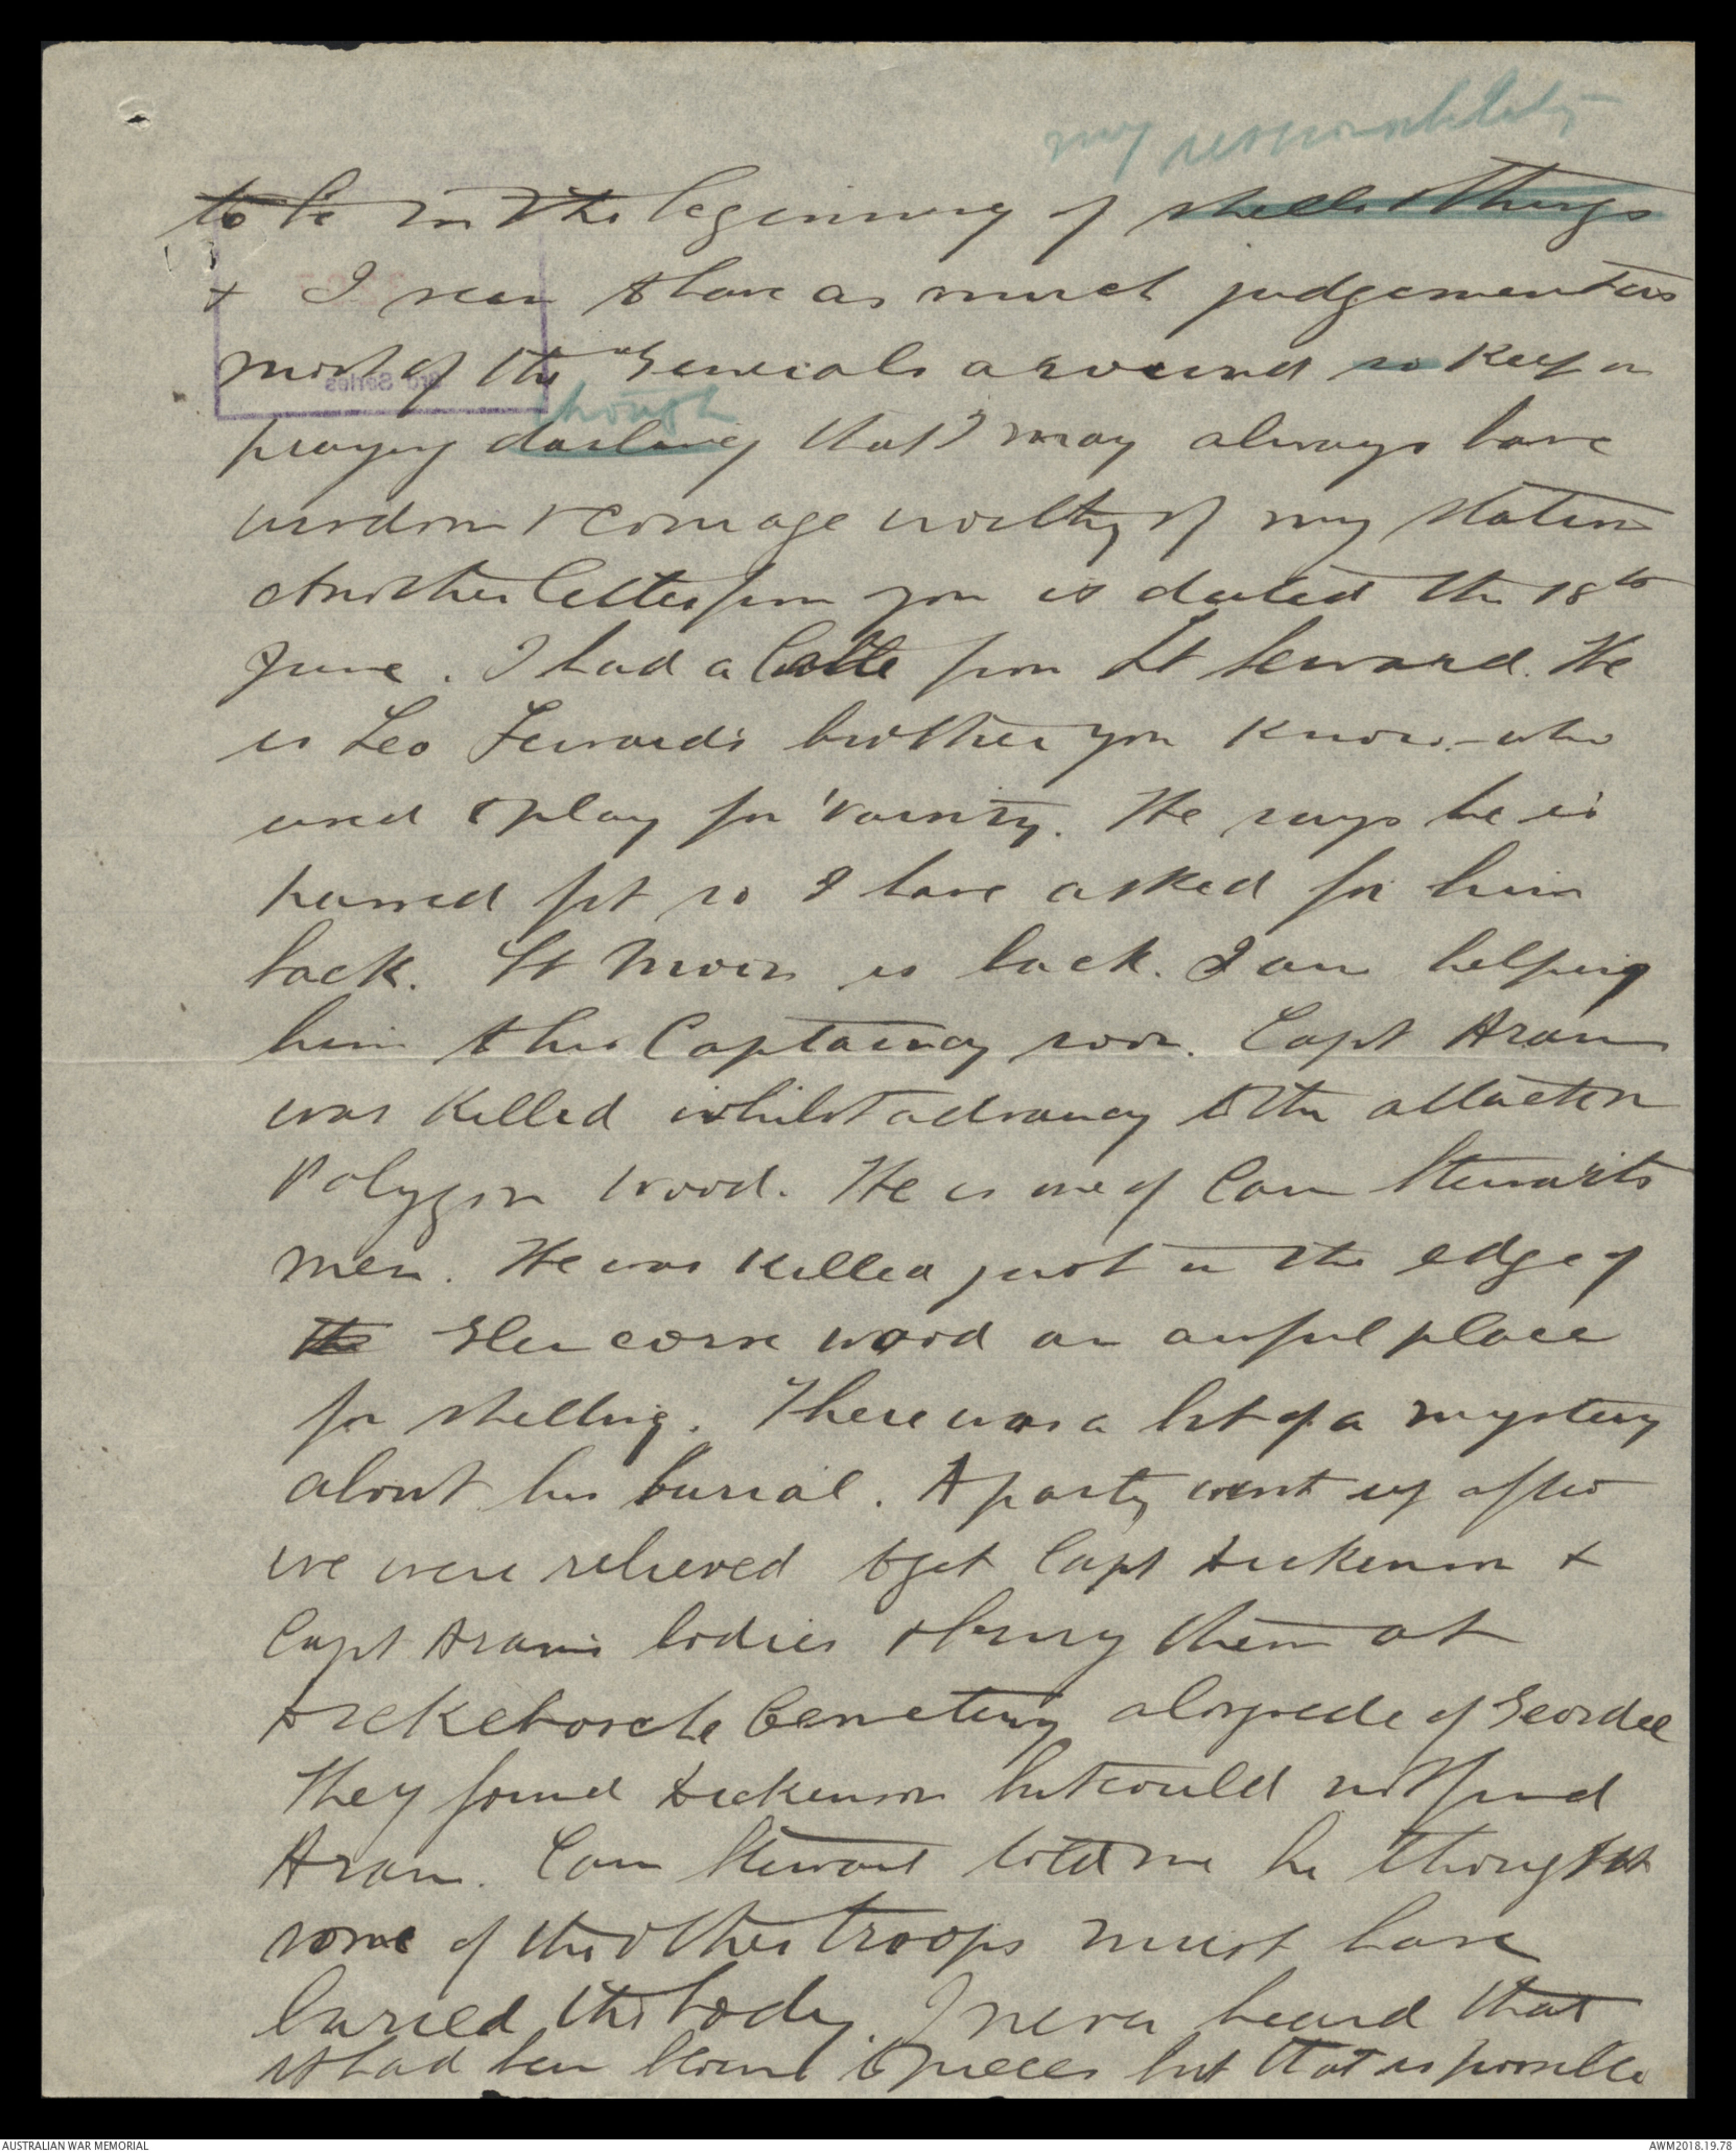 my responsibility
to be in the beginning of shells & things
& I seem to have as much judgement as
most of the Generals around so keep on
though
praying darling that I may always have
wisdom & courage worthy of my station
Another letter from you is dated the 18th
June. I had a letter from Lt Seward. He
is Leo Seward's brother you know - who
used to play for 'Varsity. He says he is
passed fit so I have asked for him
back. Lt Moir is back. I am helping
him to his Captaincy soon. Capt Aram
was killed whilst advancing to the attack on
Polygon Wood. He is one of Cam Stewart's
men. He was killed just on the edge of
the Glencorse wood an awful place
for shelling. There was a bit of a mystery
about his burial. A party went up after
we were relieved to get Capt Dickenson &
Capt Aram's bodies & bury them at
Dickebosche Cemetery alongside of Geordie
They found Dickenson but could not find
Aram. Cam Stewart told me he thought
some of the other troops must have
buried the body. I never heard that
it had been blown to pieces but that is possible
AUSTRALIAN WAR MEMORIAL
AWM2018.19.78